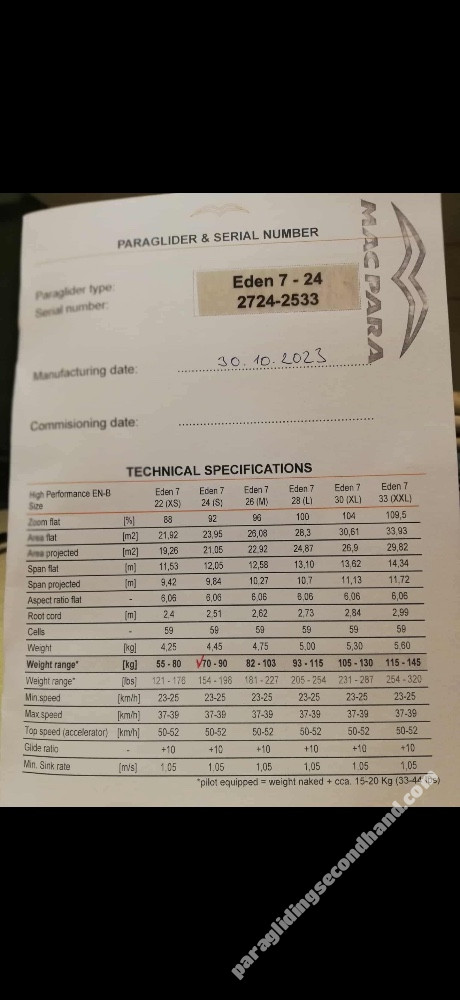 PARAGLIDER & SERIAL NUMBER
MAC PARA
Paraglider type: Eden 7 - 24
Serial number: 2724-2533
Manufacturing date: 30.10.2023
Commisioning date:
TECHNICAL SPECIFICATIONS
High Performance EN-B Eden 7 Eden 7 Eden 7 Eden 7 Eden 7 Eden 7
Size 22 (XS) 24 (S) 26 (M) 28 (L) 30 (XL) 33 (XXL)
Zoom flat [%] 88 92 96 100 104 109,5
Area flat [m2] 21,92 23,95 26,08 28,3 30,61 33,93
Area projected [m2] 19,26 21,05 22,92 24,87 26,9 29,82
Span flat [m] 11,53 12,05 12,58 13,10 13,62 14,34
Span projected [m] 9,42 9,84 10,27 10,7 11,13 11,72
Aspect ratio flat - 6,06 6,06 6,06 6,06 6,06 6,06
Root cord [m] 2,4 2,51 2,62 2,73 2,84 2,99
Cells - 59 59 59 59 59 59
Weight [kg] 4,25 4,45 4,75 5,00 5,30 5,60
Weight range* [kg] 55 - 80 √70 - 90 82 - 103 93 - 115 105 - 130 115 - 145
Weight range* [lbs] 121 - 176 154 - 198 181 - 227 205 - 254 231 - 287 254 - 320
Min.speed [km/h] 23-25 23-25 23-25 23-25 23-25 23-25
Max.speed [km/h] 37-39 37-39 37-39 37-39 37-39 37-39
Top speed (accelerator) [km/h] 50-52 50-52 50-52 50-52 50-52 50-52
Glide ratio - +10 +10 +10 +10 +10 +10
Min. Sink rate [m/s] 1,05 1,05 1,05 1,05 1,05 1,05
*pilot equipped = weight naked + cca. 15-20 Kg (33-44 lbs)
paraglidingsecondhand.com